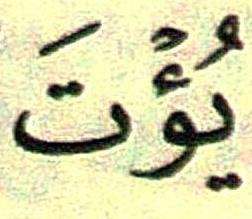 يُؤْتَ